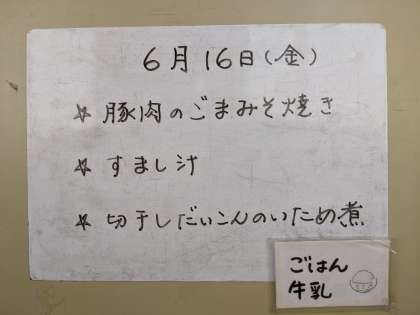 6月16日(金)
☆ 豚肉のごまみそ焼き
☆ すまし汁
☆ 切干しだいこんのいため煮
ごはん
牛乳